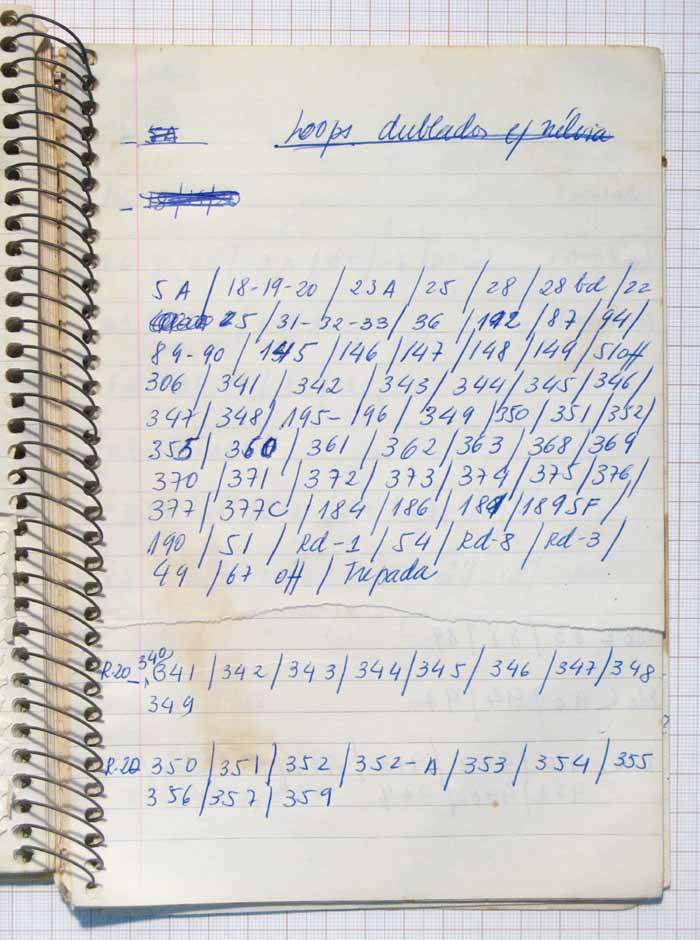 5A
Loops dublados c/ Nilvia
5A / 18-19-20 / 23A / 25 / 28 / 28 bd / 22
25 / 31-32-33 / 36 / 192 / 87 / 94 /
89-90 / 145 / 146 / 147 / 148 / 149 / 51 off
306 / 341 / 342 / 343 / 344 / 345 / 346 /
347 / 348 / 195-196 / 349 / 350 / 351 / 352 /
355 / 360 / 361 / 362 / 363 / 368 / 369
370 / 371 / 372 / 373 / 374 / 375 / 376 /
377 / 377C / 184 / 186 / 189 / 189SF /
190 / 51 / Rd-1 / 54 / Rd-8 / Rd-3 /
49 / 67 off / Trepada
R.20_ 340, 341 / 342 / 343 / 344 / 345 / 346 / 347 / 348
349
R.22 350 / 351 / 352 / 352-A / 353 / 354 / 355
356 / 357 / 359